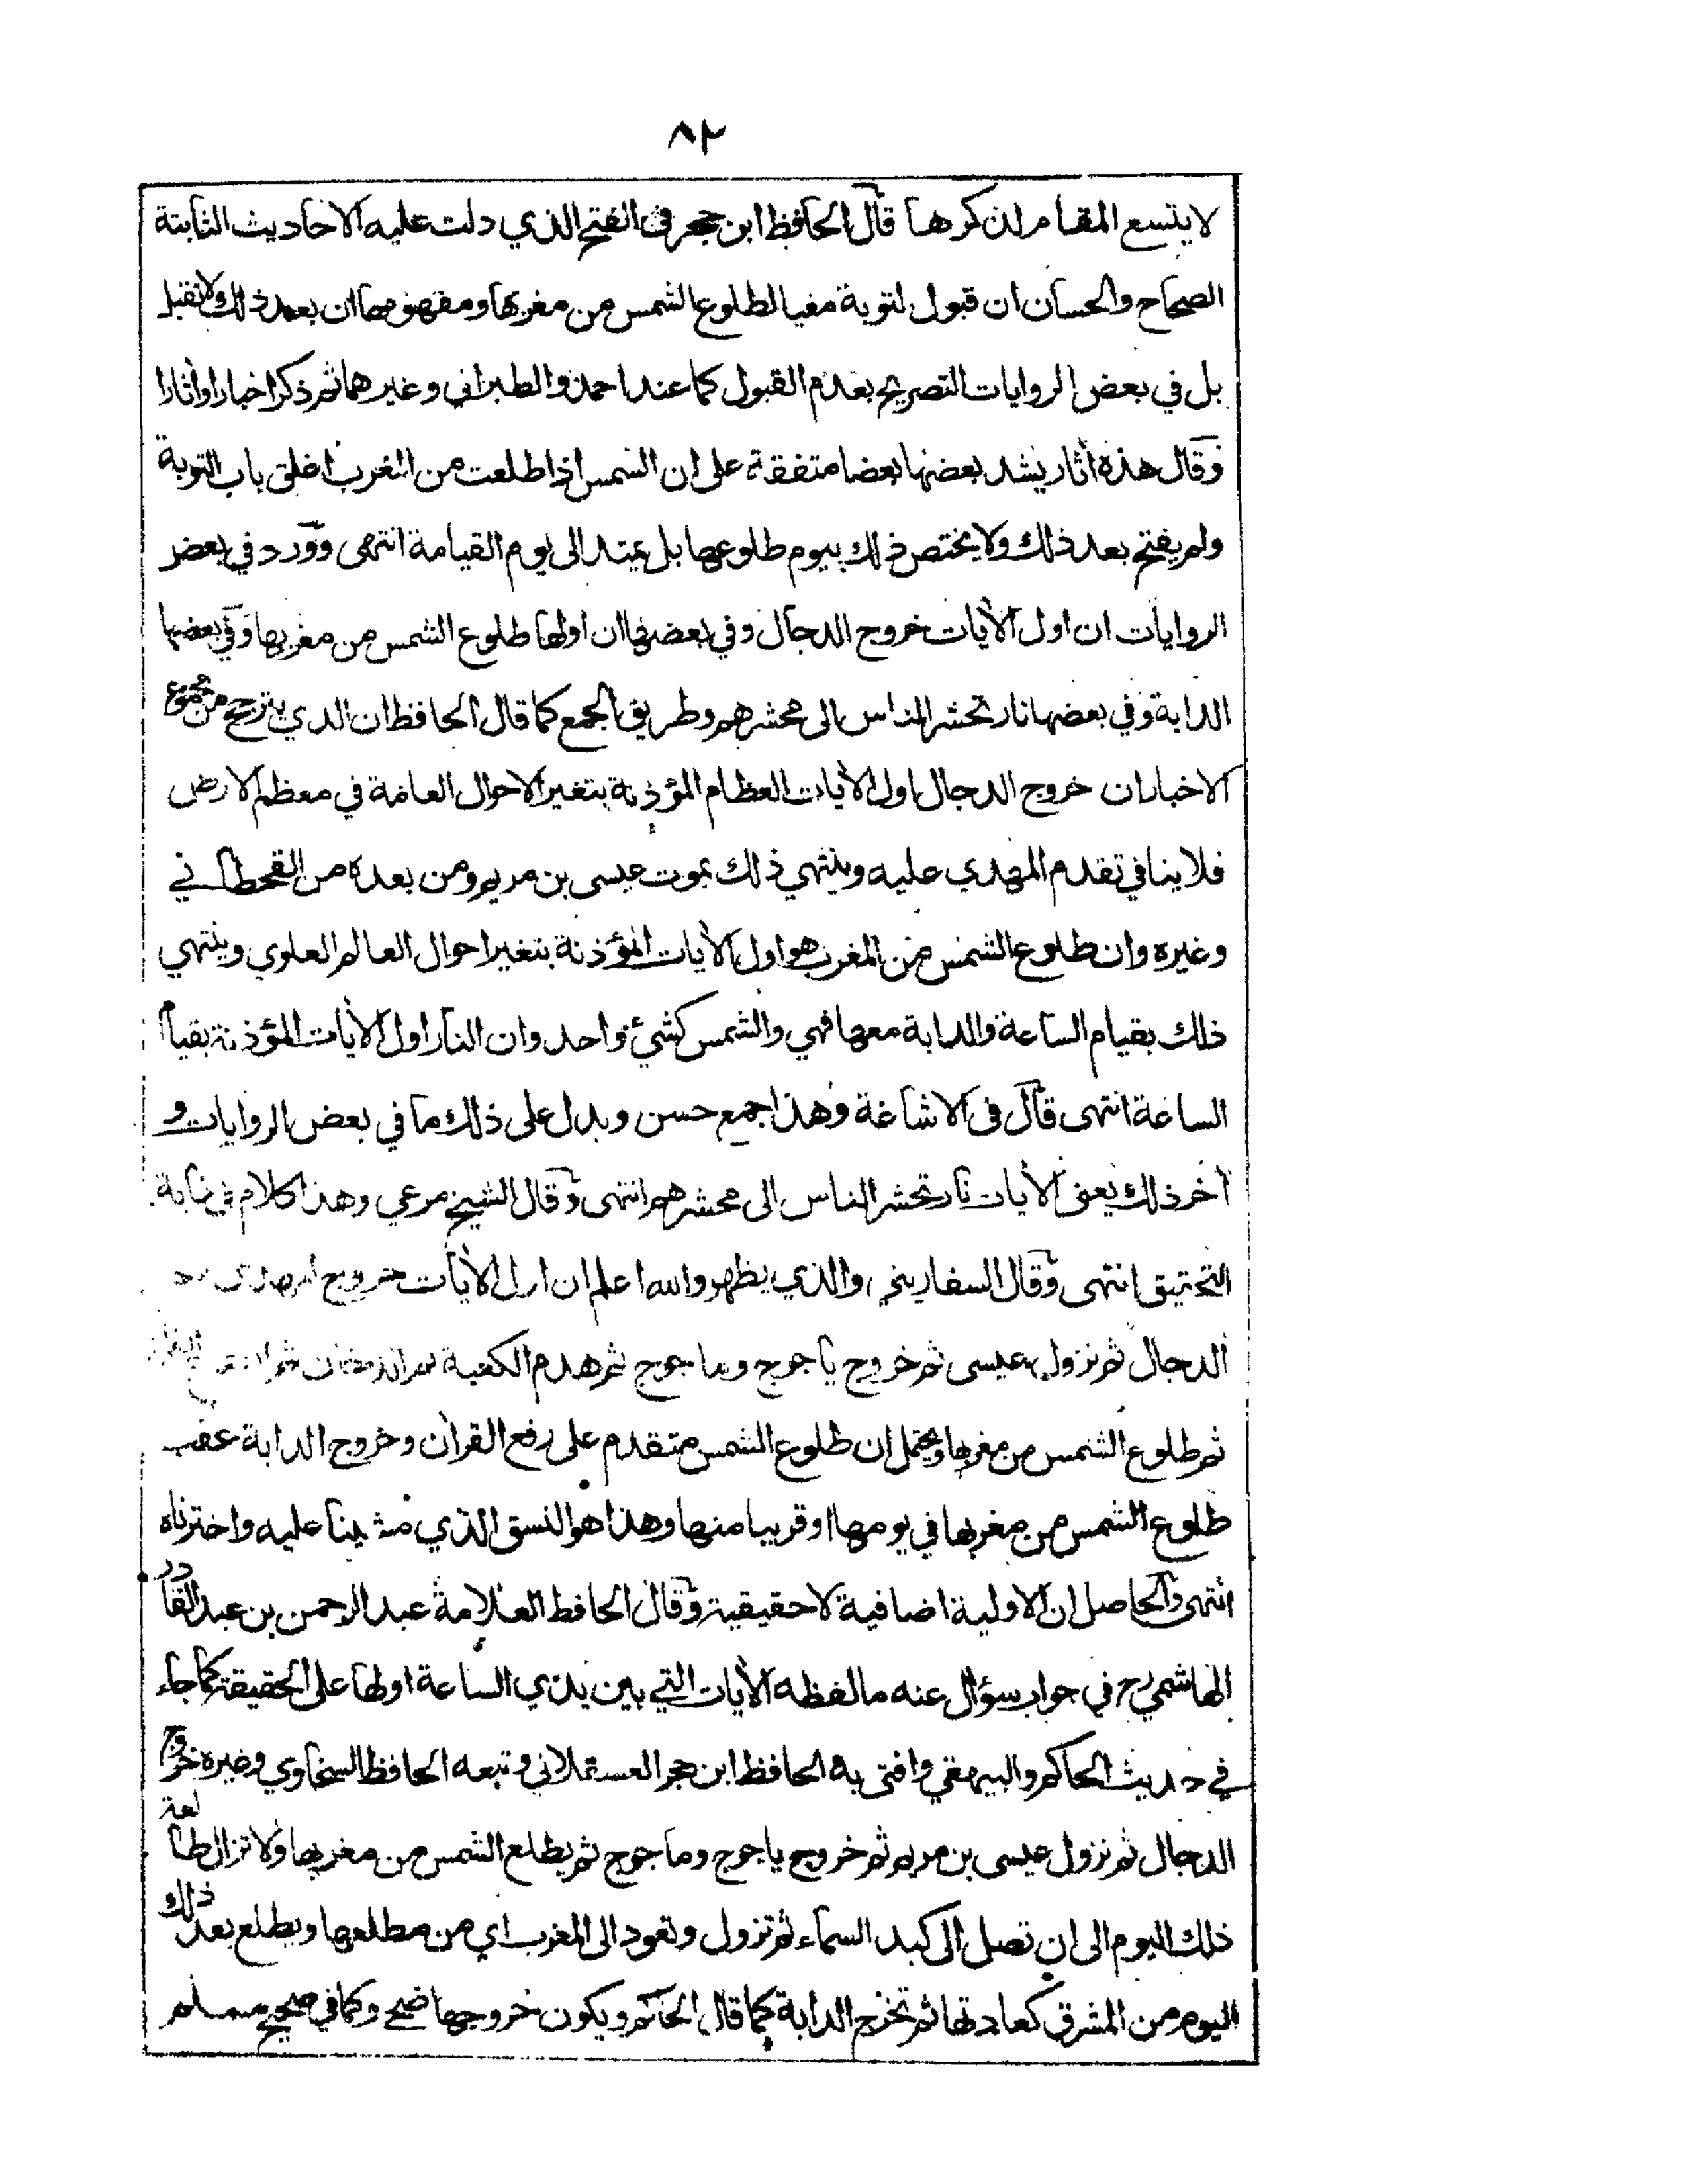 ٨٢
لا يتسع المقام لذكرها قال الحافظ ابن حجر في الفتح الذي دلت عليه الاحاديث الثابتة
الصحاح والحسان ان قبول لتوبة مغيا لطلوع الشمس من مغربها ومفهومها ان بعد ذلك ولا تقبل
بل في بعض الروايات التصريح بعدم القبول كما عند احمد والطبراني وغيرهما ثم ذكر اخبارا وأثارا
وقال هذه أثار يشد بعضها بعضا متفقة على ان الشمس اذا طلعت من المغرب اغلق باب التوبة
ولم يفتح بعد ذلك ولا يختص ذلك بيوم طلوعها بل يمتد الى يوم القيامة انتهى وورد في بعض
الروايات ان اول الأيات خروج الدجال وفي بعضها ان اولها طلوع الشمس من مغربها وفي بعضها
الدابة وفي بعضها نار تحشر الناس الى محشرهم وطريق الجمع كما قال الحافظ ان الذي يترجح من مجموع
الاخبار ان خروج الدجال اول الأيات العظام المؤذنة بتغير الاحوال العامة في معظم الارض
فلا ينافي تقدم المهدي عليه وينتهي ذلك بموت عيسى بن مريم ومن بعده من القحطاني
وغيره وان طلوع الشمس من المغرب هو اول الأيات المؤذنة بتغير احوال العالم العلوي وينتهي
ذلك بقيام الساعة والدابة معها فهي والشمس كشيء واحد وان النار اول الأيات المؤذنة بقيام
الساعة انتهى قال في الاشاعة وهذا جمع حسن ويدل على ذلك ما في بعض الروايات و
أخر ذلك يعني الأيات نار تحشر الناس الى محشرهم انتهى وقال الشيخ مرعي وهذا كلام في غاية
التحقيق انتهى وقال السفاريني والذي يظهر والله اعلم ان اول الأيات خروج المهدي
الدجال ثم نزول عيسى ثم خروج ياجوج وماجوج ثم هدم الكعبة ثم الدخان ثم
ثم طلوع الشمس من مغربها ويحتمل ان طلوع الشمس متقدم على رفع القرأن وخروج الدابة عقب
طلوع الشمس من مغربها في يومها او قريبا منها وهذا هو النسق الذي مشينا عليه واخترناه
انتهى والحاصل ان الاولية اضافية لا حقيقية وقال الحافظ العلامة عبد الرحمن بن عبد القادر
الهاشمي رح في جواب سؤال عنه ما لفظه الأيات التي بين يدي الساعة اولها على الحقيقة كما جاء
في حديث الحاكم والبيهقي وافتى به الحافظ ابن حجر العسقلاني وتبعه الحافظ السخاوي وغيره خروج
الدجال ثم نزول عيسى بن مريم ثم خروج ياجوج وماجوج ثم يطلع الشمس من مغربها ولا تزال طالعة
ذلك اليوم الى ان تصل الى كبد السماء ثم تزول وتعود الى المغرب اي من مطلعها ويطلع بعد ذلك
اليوم من المشرق كعادتها ثم تخرج الدابة كما قال الحاكم ويكون خروجها ضحى وكما في صحيح مسلم